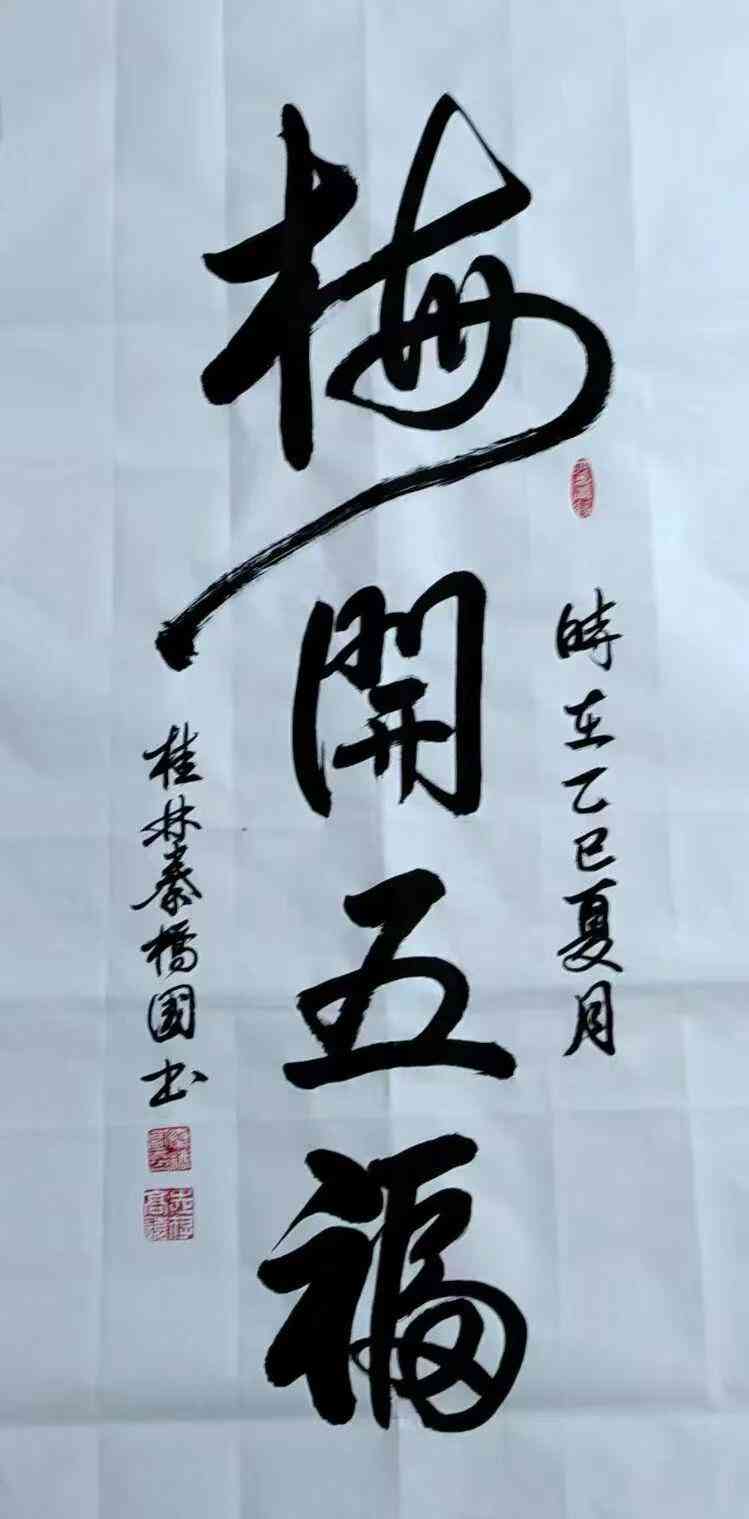 梅開五福
時在乙巳夏月
桂林秦橋國书